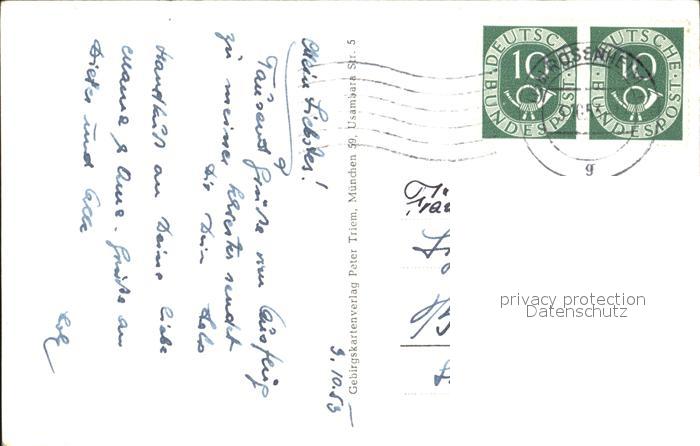 Mein Liebstes!
Tausend Grüße vom Ausflug
zu meiner sendet
Dir Dein
Handkuß an Deine liebe
Mama & Oma. Grüße an
Dieter und alle
3.10.53
Gebirgskartenverlag Peter Triem, München 59, Usambara Str. 5
DEUTSCHE BUNDESPOST
10
DEUTSCHE BUNDESPOST
10
ROSENHEIM
g
Frau
privacy protection
Datenschutz